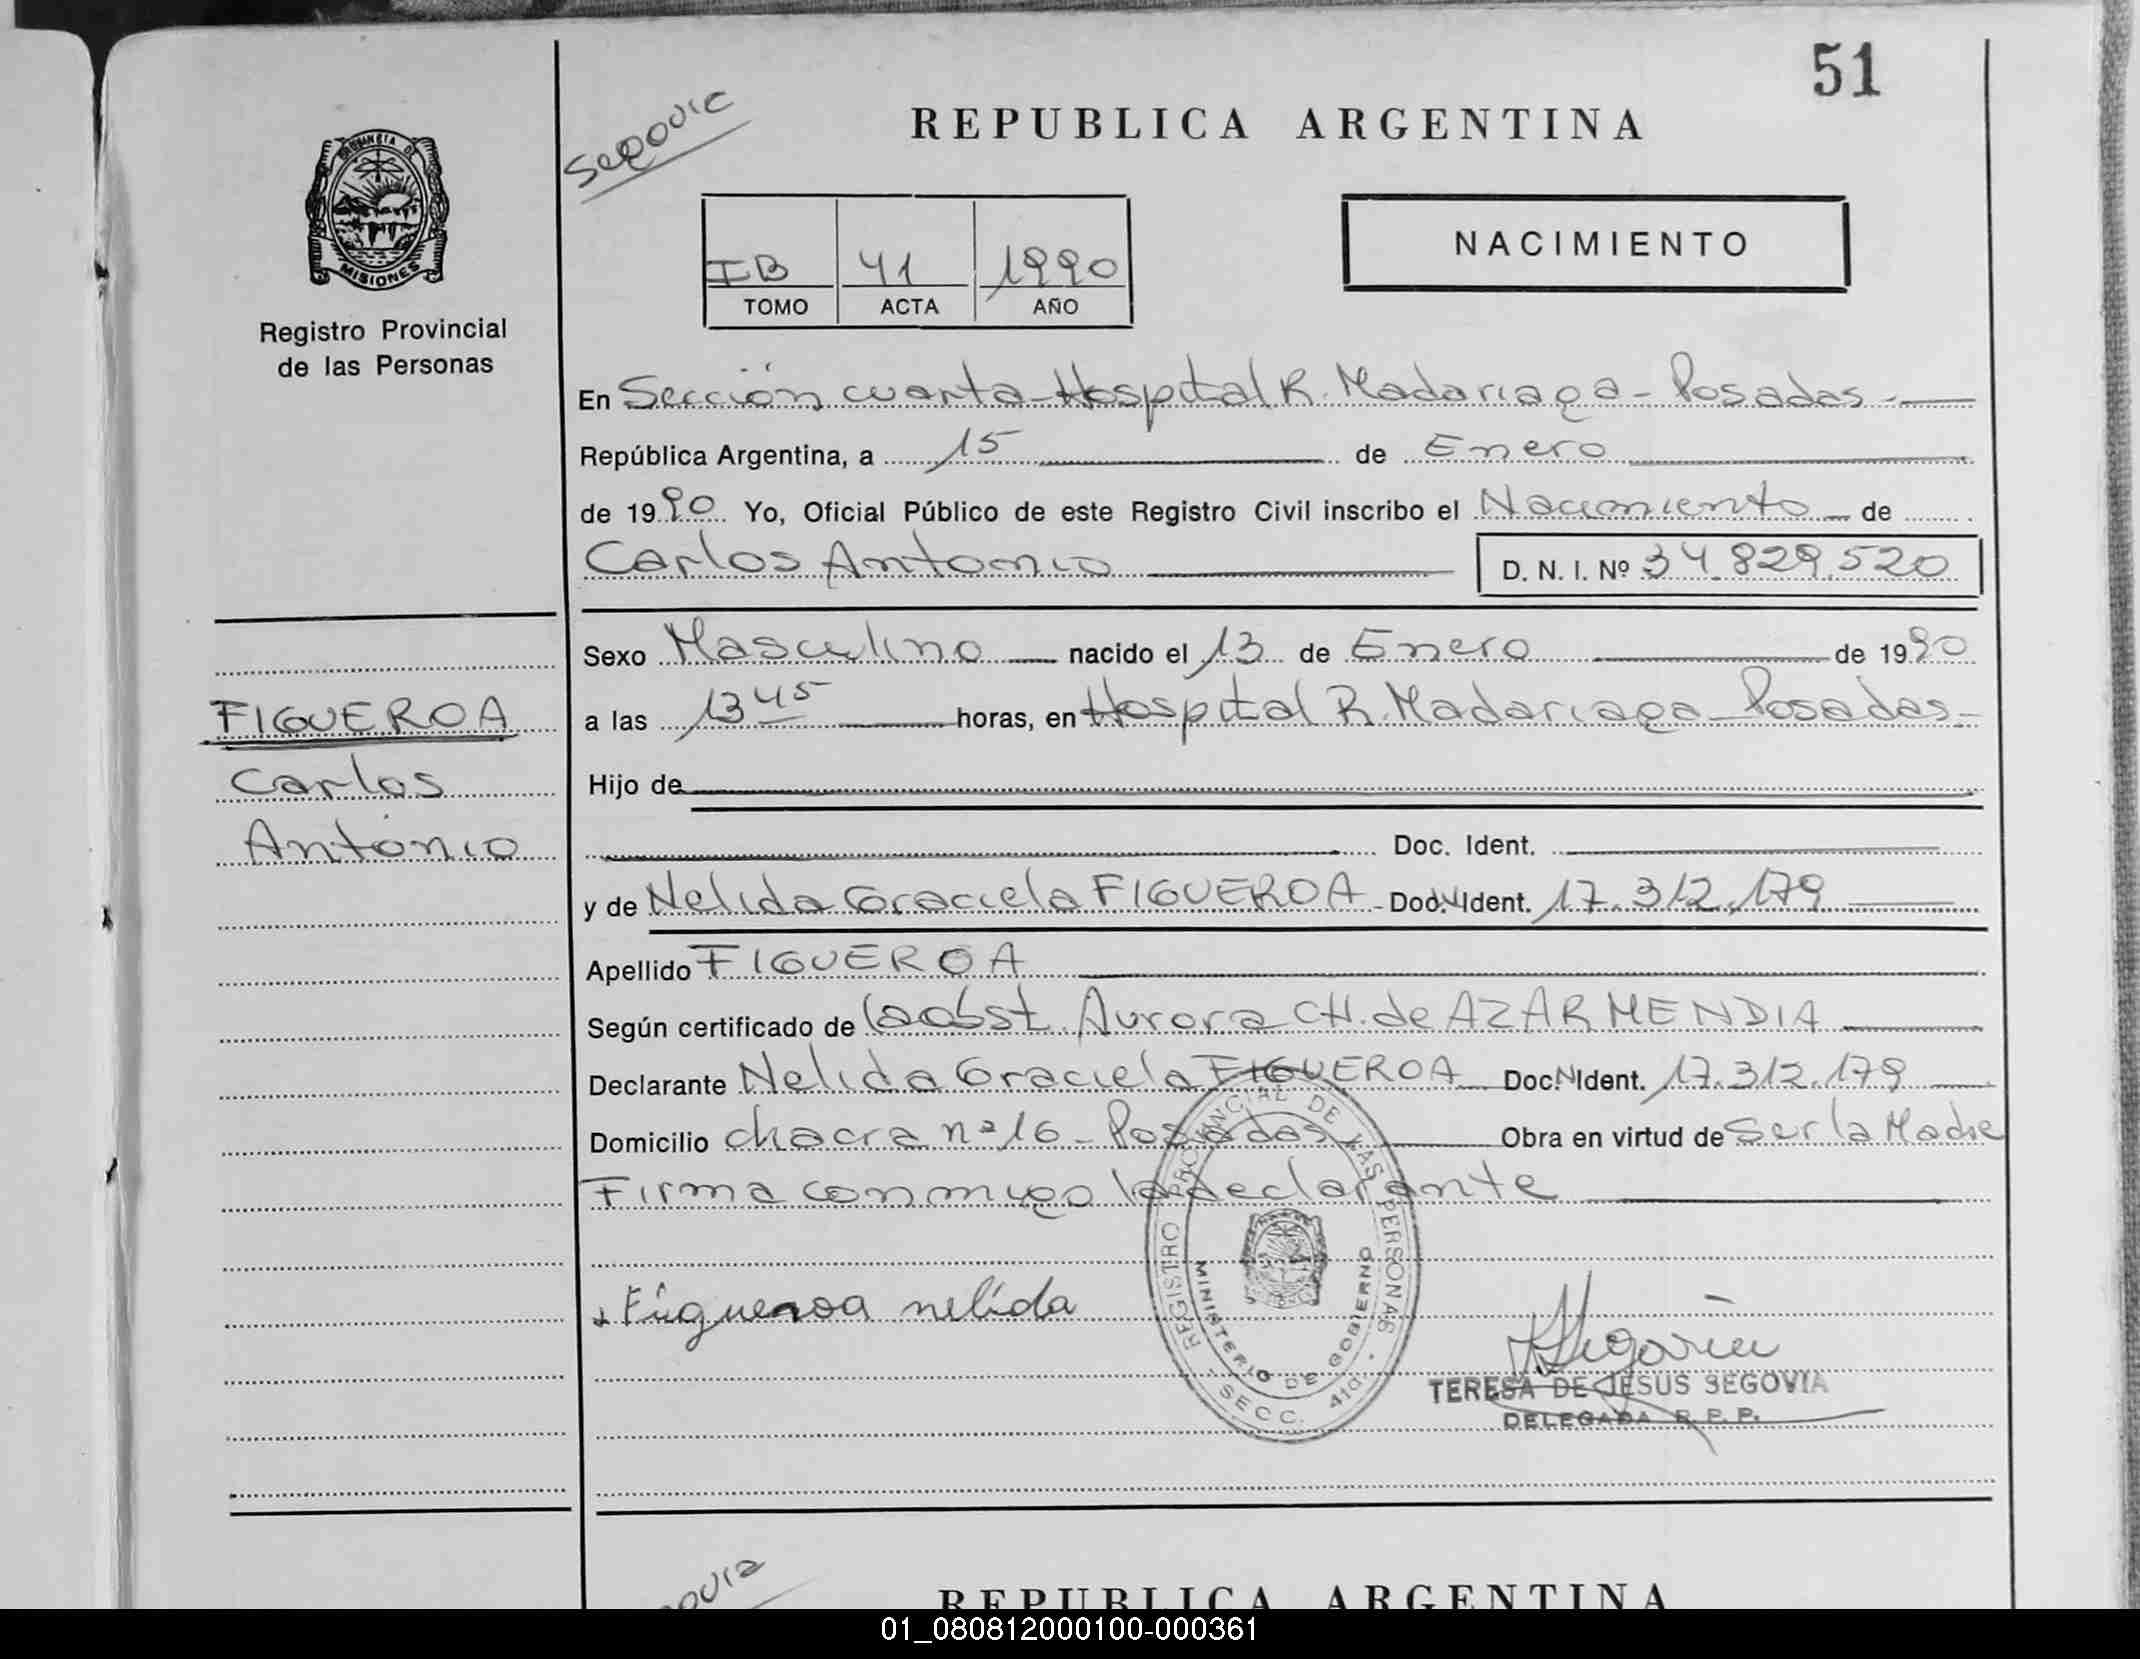 51
REPUBLICA ARGENTINA
Segovia
PROVINCIA DE
MISIONES
Registro Provincial
de las Personas
NACIMIENTO
IB 41 1990
TOMO ACTA AÑO
En Sección cuarta - Hospital R. Madariaga - Posadas -
República Argentina, a 15 de Enero
de 1990 Yo, Oficial Público de este Registro Civil inscribo el Nacimiento de
Carlos Antonio D. N. I. Nº 34.829.520
Sexo Masculino nacido el 13 de Enero de 1990
a las 13 45 horas, en Hospital R. Madariaga - Posadas -
Hijo de
Doc. Ident.
y de Nelida Graciela FIGUEROA - Doc. Ident. 17.312.179
Apellido FIGUEROA
Según certificado de la obst. Aurora CH. de AZARMENDIA
Declarante Nelida Graciela FIGUEROA Doc. Ident. 17.312.179
Domicilio chacra nº 16 - Posadas Obra en virtud de Ser la Madre
Firma conmigo la declarante
FIGUEROA
Carlos
Antonio
Figueroa nelida
REGISTRO PROVINCIAL DE LAS PERSONAS
MINISTERIO DE GOBIERNO
SECC. 4ta.
Segovia
TERESA DE JESUS SEGOVIA
DELEGADA R. P. P.
REPUBLICA ARGENTINA
01_080812000100-000361